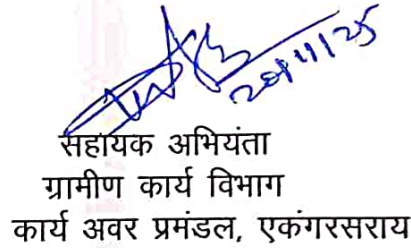 20/11/25
सहायक अभियंता
ग्रामीण कार्य विभाग
कार्य अवर प्रमंडल, एकंगरसराय